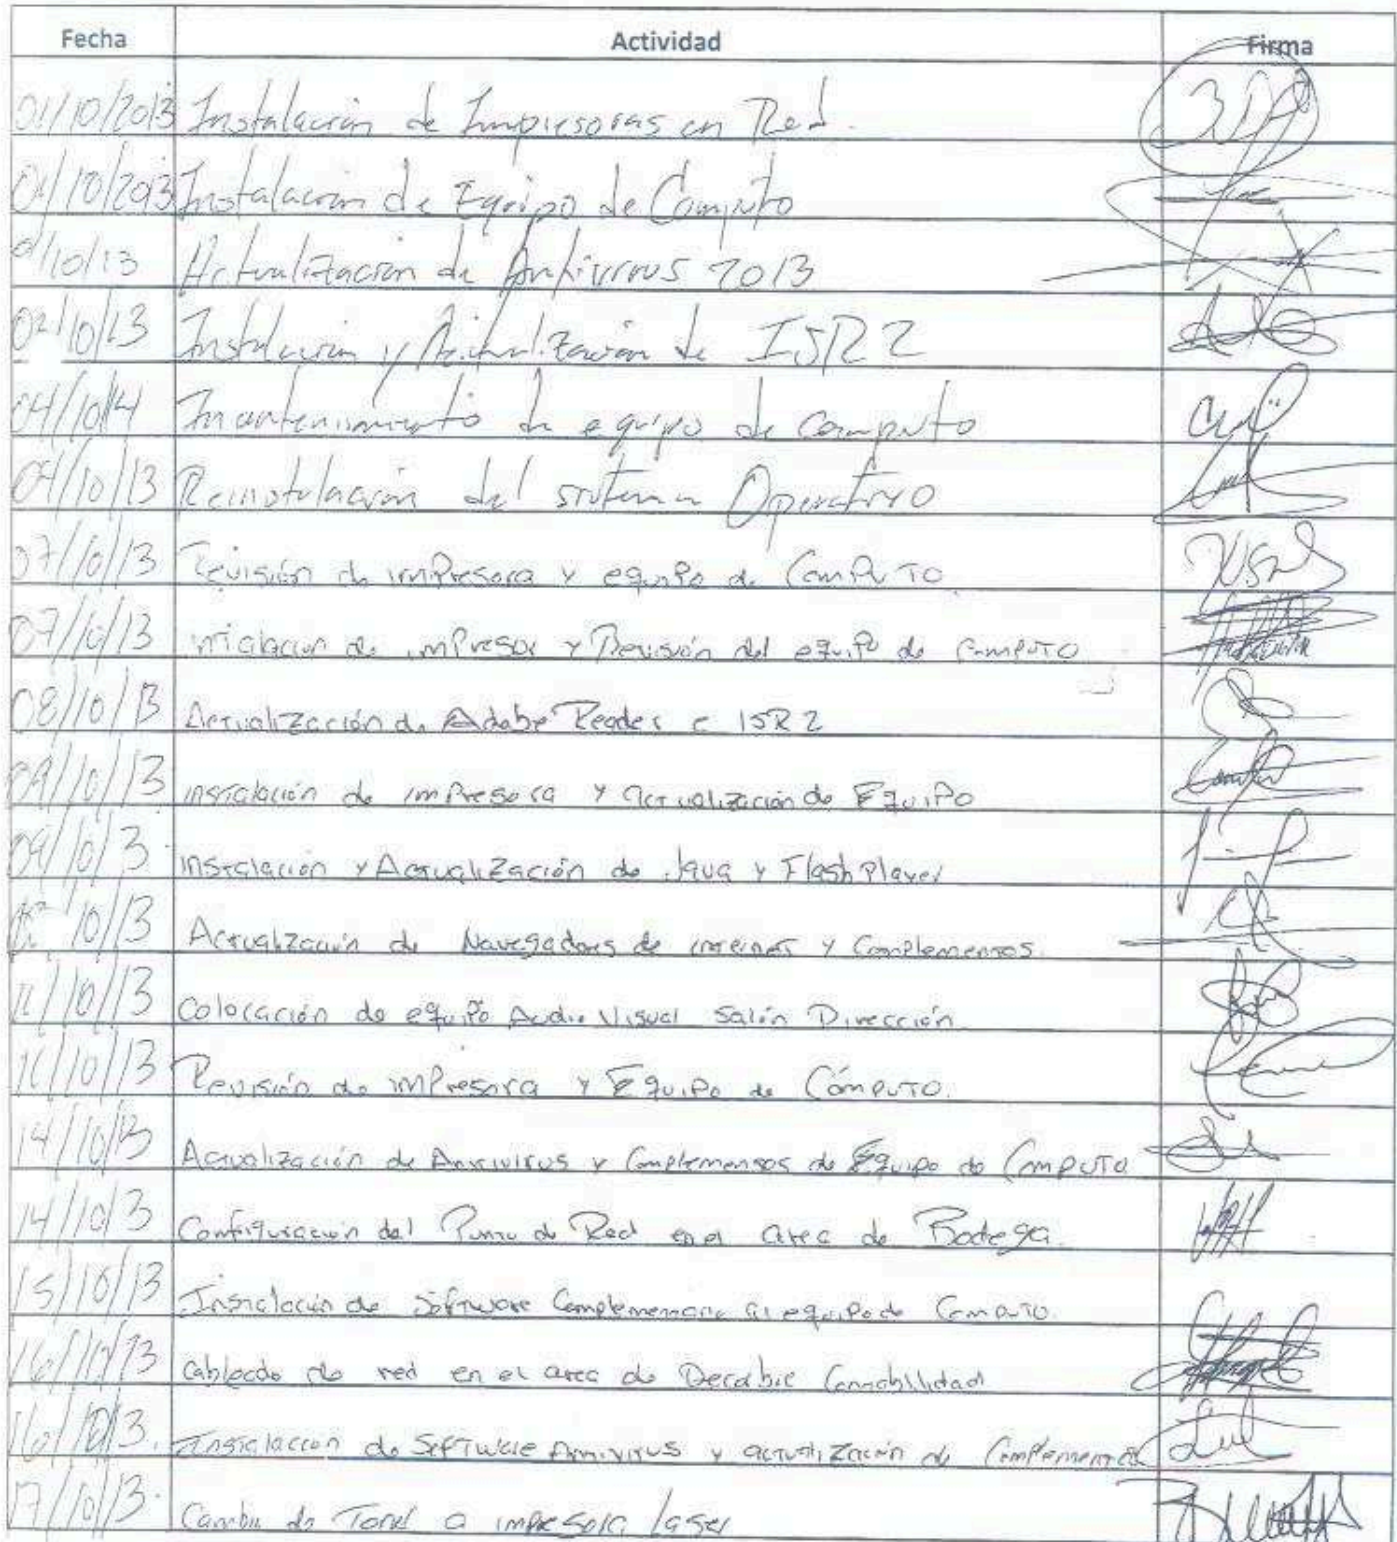 Fecha Actividad Firma
01/10/2013 Instalación de Impresoras en Red.
01/10/2013 Instalacion de Equipo de Computo
01/10/13 Actualización de Antivirus 2013
02/10/13 Instalacion y Actualización de ISR2
04/10/14 mantenimiento de equipo de computo
04/10/13 Reinstalación del sistema Operativo
07/10/13 Revisión de impresora y equipo de Computo
07/10/13 instalacion de impresor y Revisión del equipo de Computo
08/10/13 Actualización de Adobe Reader e ISR2
09/10/13 instalación de impresora y actualización de Equipo
09/10/13 instalación y Actualización de Java y Flash Player
10/13 Actualización de Navegadores de internet y Complementos.
11/10/13 Colocación de equipo Audio Visual Salón Dirección
11/10/13 Revisión de impresora y Equipo de Cómputo.
14/10/13 Actualización de Antivirus y Complementos de Equipo de Computo
14/10/13 Configuración del Punto de Red en el area de Bodega.
15/10/13 Instalación de Software Complementario al equipo de Computo.
16/10/13 Cableado de red en el area de Contabilidad
16/10/13. Instalacion de Software Antivirus y actualización de Complementos
17/10/13. Cambio de Toner a impresora laser